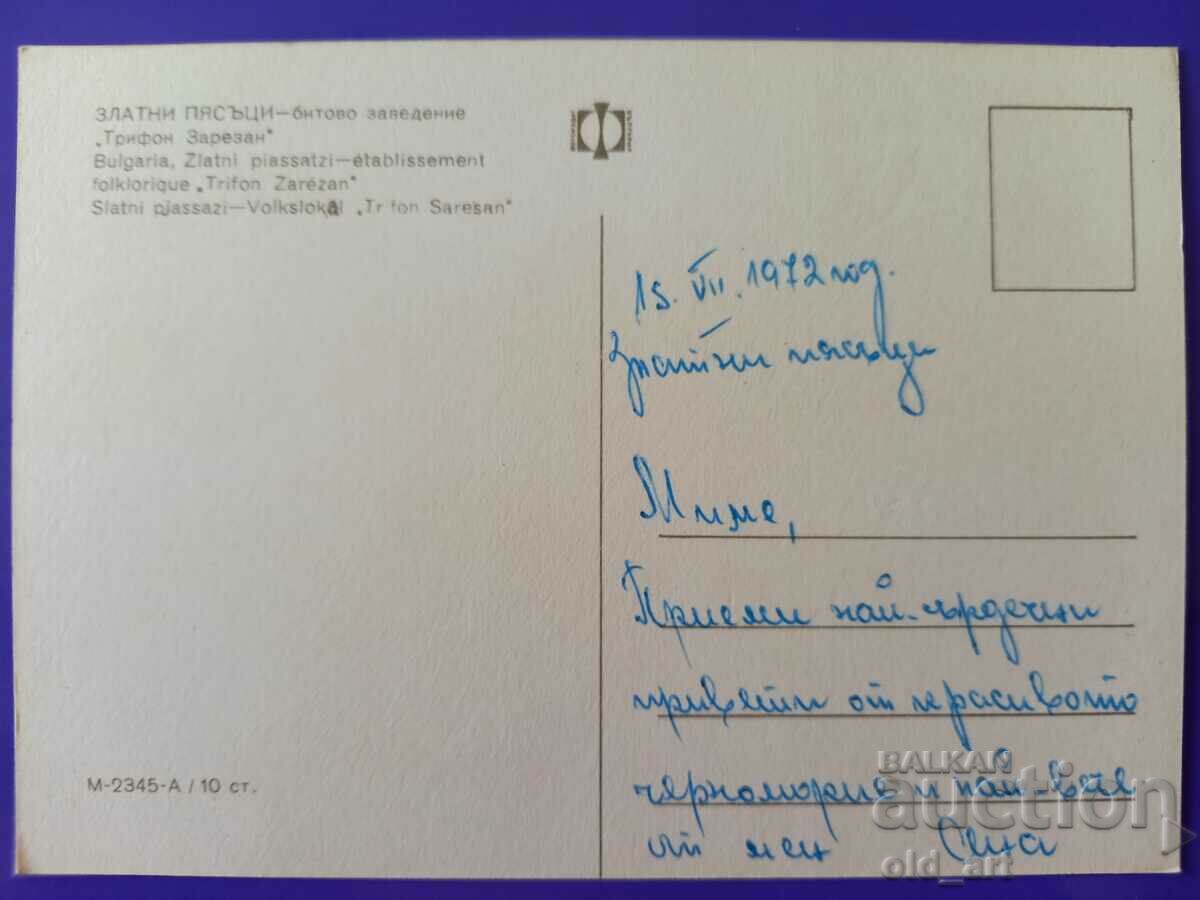 ЗЛАТНИ ПЯСЪЦИ—битово заведение
„Трифон Зарезан"
Bulgaria, Zlatni piassatzi—établissement
folklorique „Trifon Zarézan"
Slatni pjassazi—Volkslokal „Tr fon Saresan"
M-2345-A / 10 ст.
15. VII. 1972 год.
Златни пясъци
Миме,
Приеми най-сърдечни
привети от красивото
черноморие и най-вече
от мен
BALKAN
auction
old_art